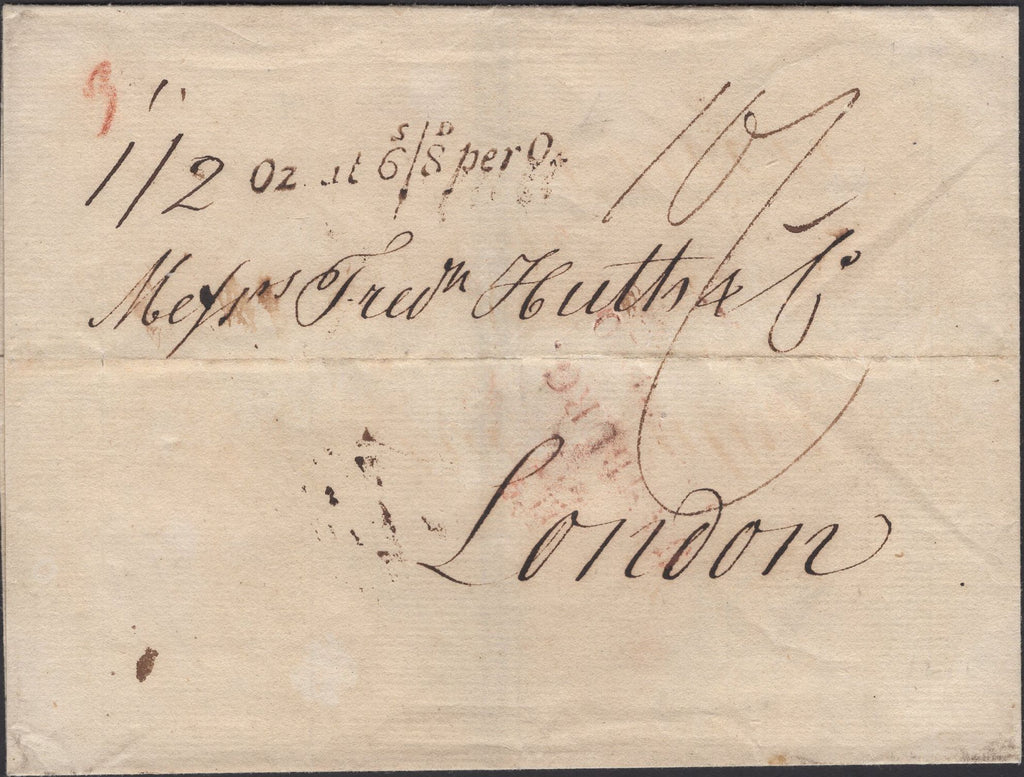 1 1/2 Oz at 6/8 per O
S D
10/
Messrs Fredk Huth & Co
London